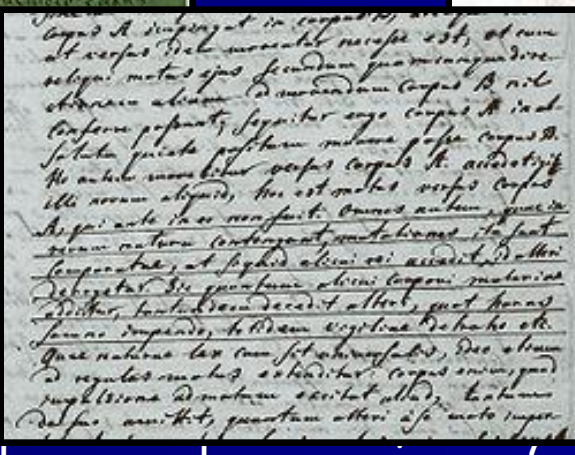 corpus A impingat in corpus B,
ut versus idem moveatur necesse est, ut cum
reliqui motus ejus secundum quamcunque dire-
ctionem aliam ad movendum corpus B nil
conferre possunt; sequitur ergo corpus A in ab-
soluta quiete positum movere posse corpus B.
Hic autem movebitur versus corpus A. accedet
illi novum aliquid, hoc est motus versus corpus
A, qui ante in eo non fuit. Omnes autem, quae in
rerum natura contingunt, mutationes ita sunt
comparatae, ut si quid alicui rei accedit, id alteri
derogetur. Sic quantum alicui corpori materiae
additur, tantundem decedit alteri, quot horas
somno impendo, totidem vigiliae detraho etc.
Quae naturae lex cum sit universalis, ideo etiam
ad regulas motus extenditur: corpus enim, quod
impulsione ad motum excitat aliud, tantum
de suo amittit, quantum alteri a se moto imper-